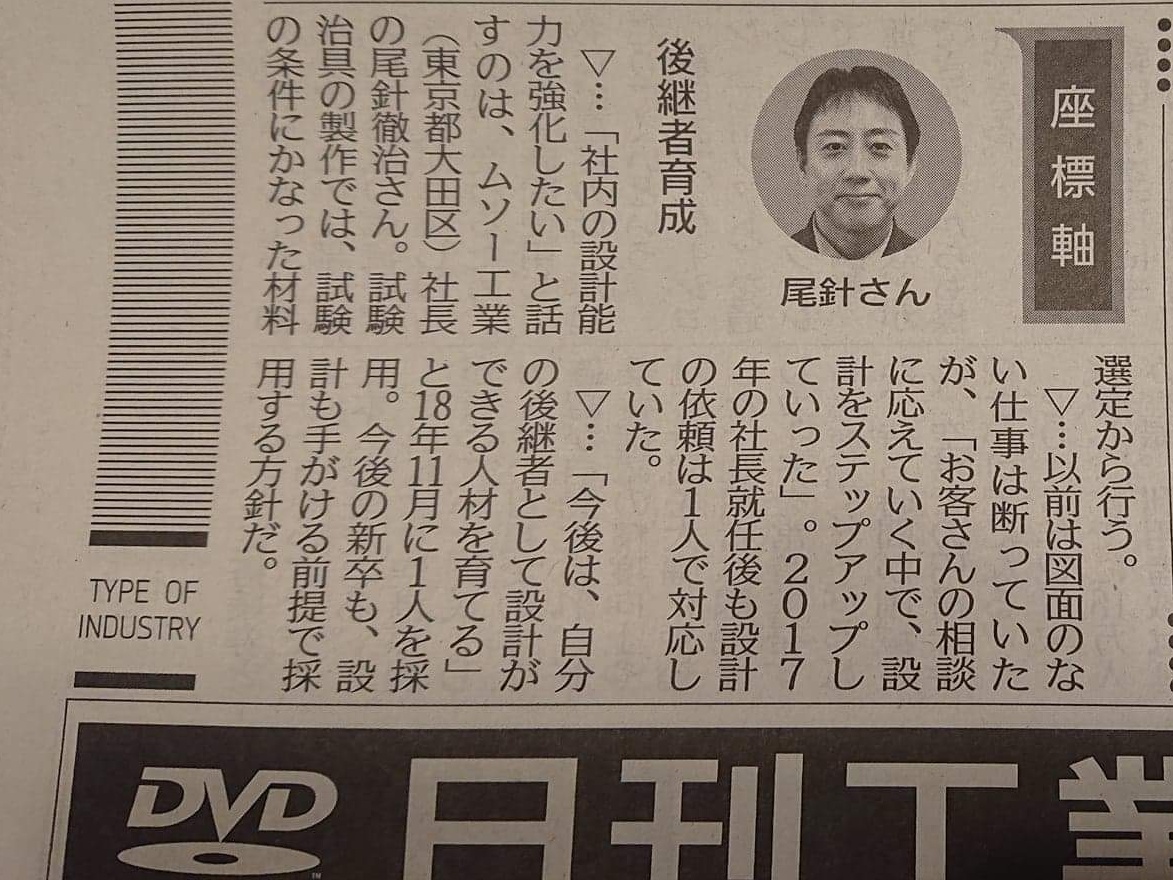 座標軸
尾針さん
後継者育成
▽…「社内の設計能
力を強化したい」と話
すのは、ムソー工業
（東京都大田区）社長
の尾針徹治さん。試験
治具の製作では、試験
の条件にかなった材料
選定から行う。
▽…以前は図面のな
い仕事は断っていた
が、「お客さんの相談
に応えていく中で、設
計をステップアップし
ていった」。２０１７
年の社長就任後も設計
の依頼は１人で対応し
ていた。
▽…「今後は、自分
の後継者として設計が
できる人材を育てる」
と18年11月に１人を採
用。今後の新卒も、設
計も手がける前提で採
用する方針だ。
TYPE OF
INDUSTRY
DVD
日刊工業